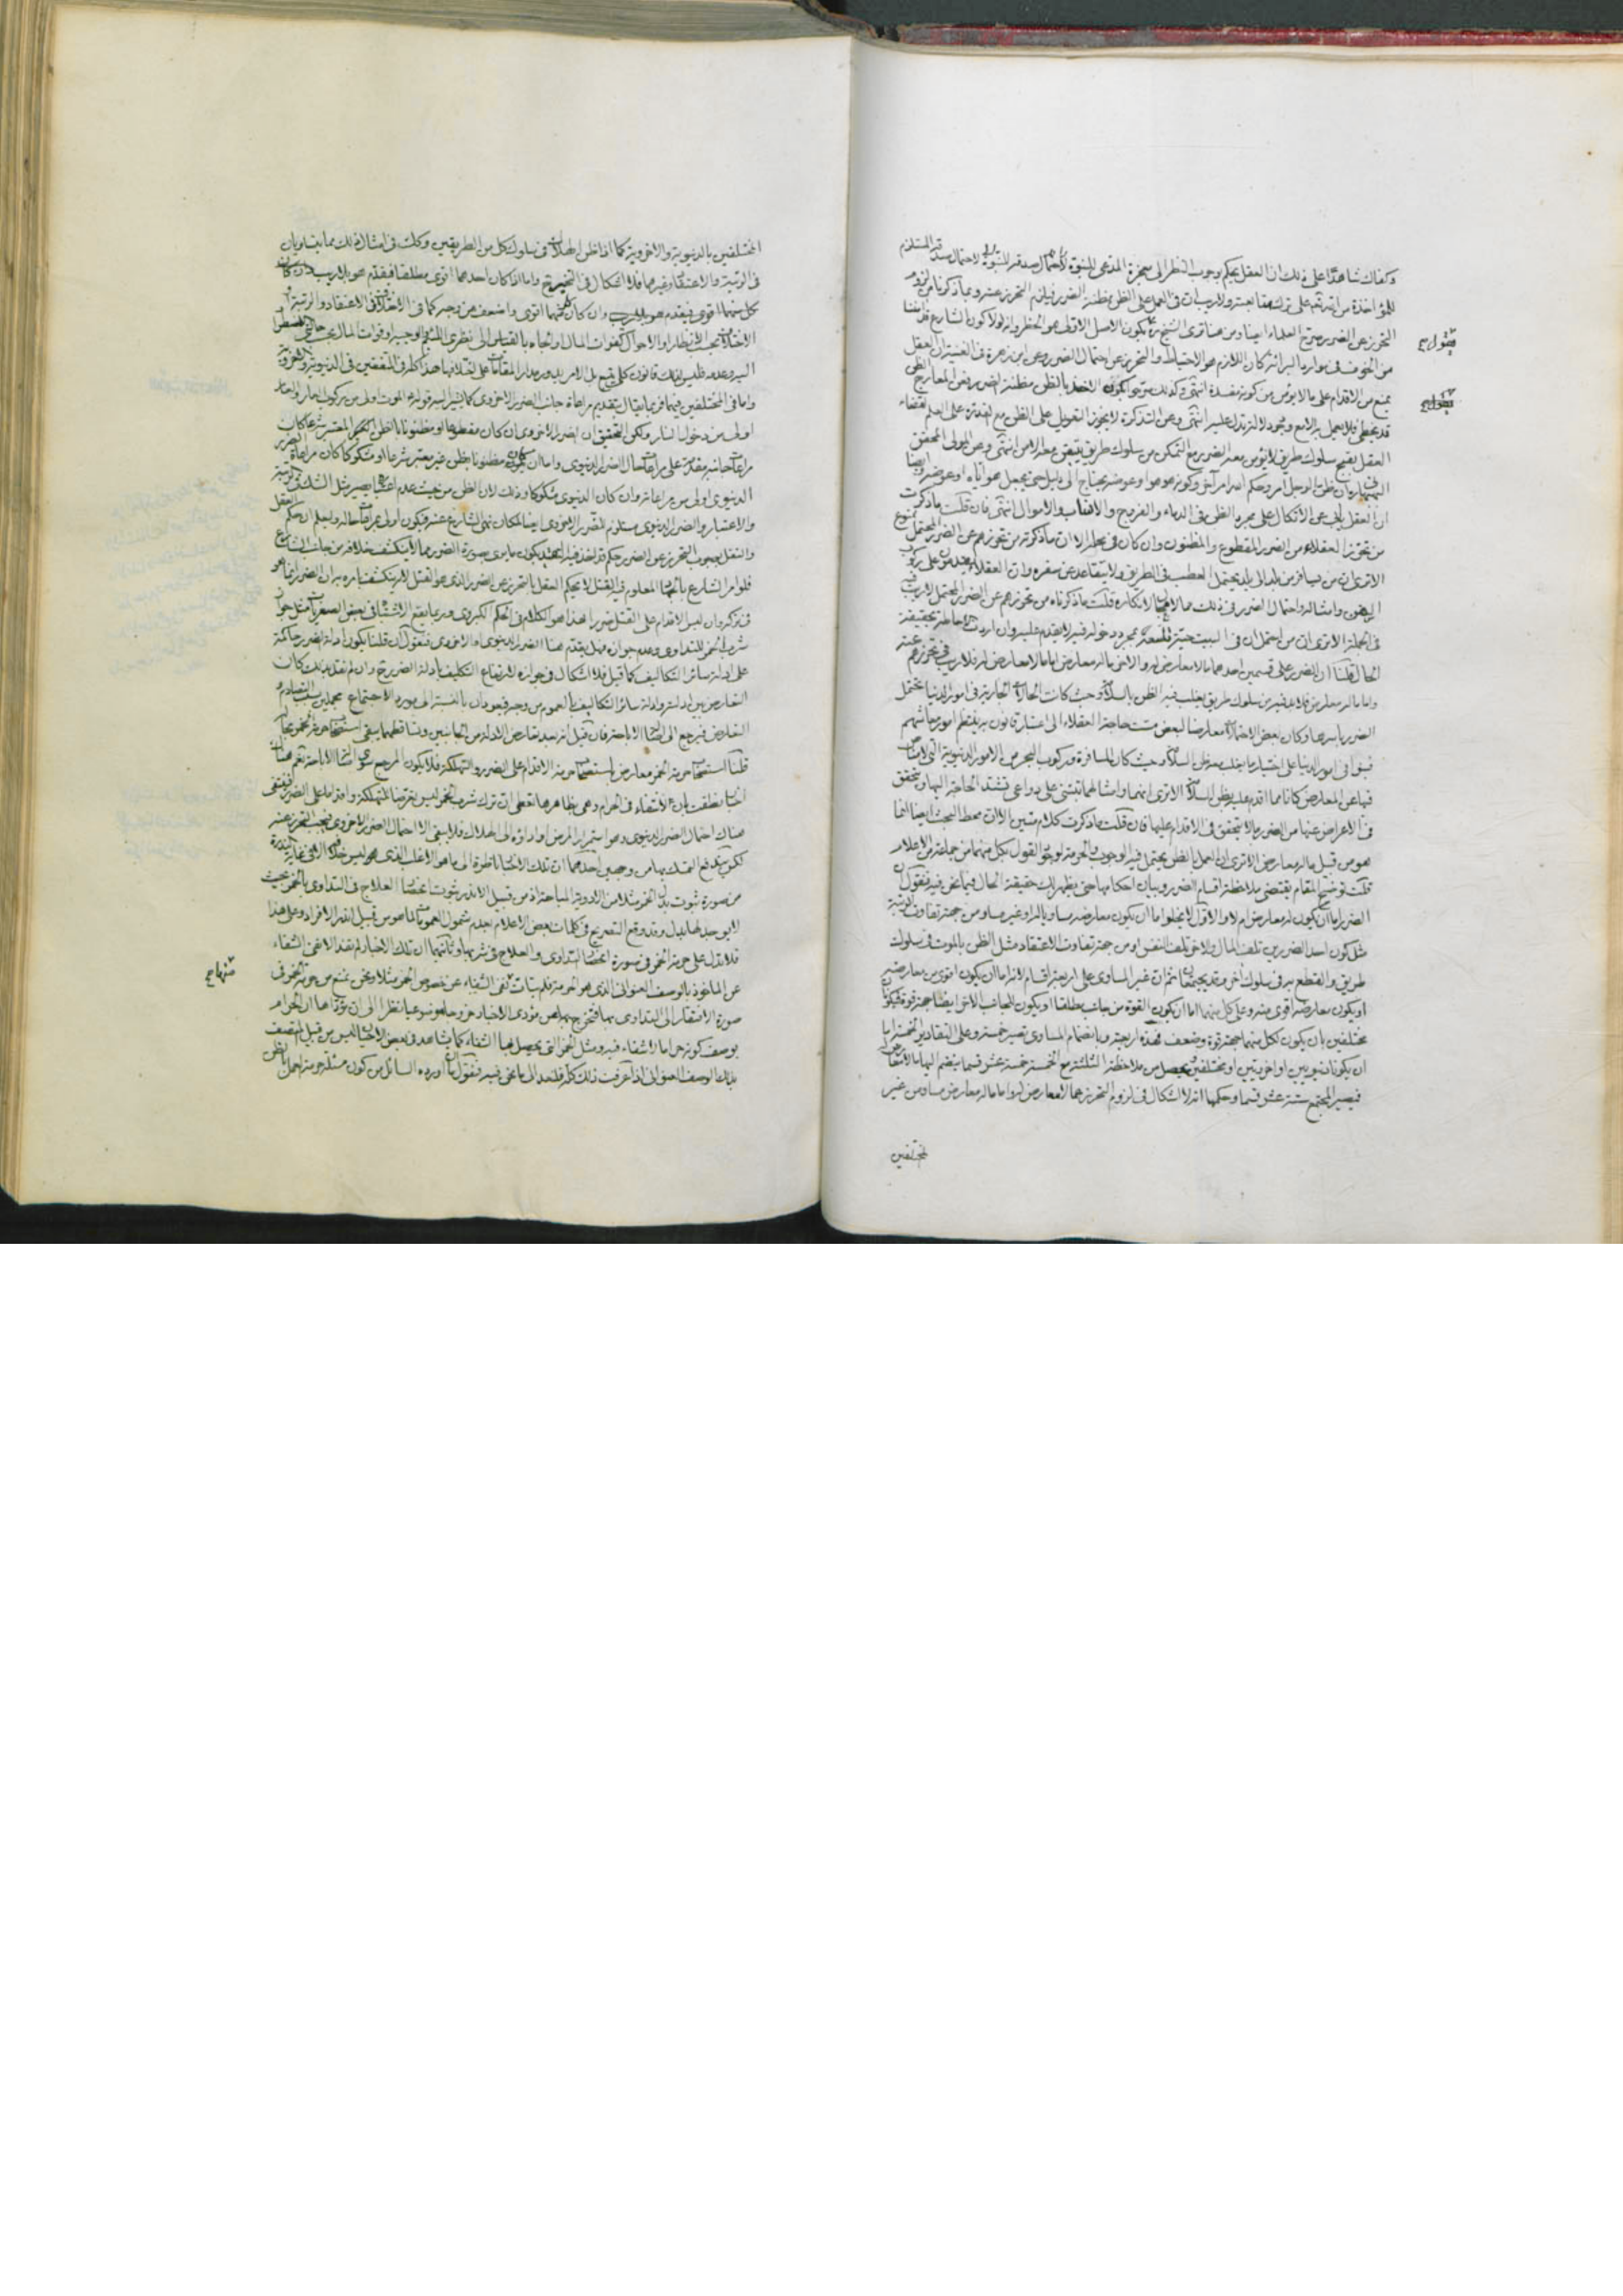 وكفاك شاهدا على ذلك ان العقل يحكم بوجوب النظر الى معجزة المدعى للنبوة لاحتمال صدقه المستلزم
للمؤاخذة من الله تعالى على ترك متابعته ولا ريب ان فى العمل على الظن مظنة الضرر فيلزم التحرز عنه وبما ذكرنا من لزوم
التحرز عن الضرر صرح العلماء ايضا ومن هنا ترى الشيخ يكون الاصل الاولى هو الحظر وانه لولا كون الشارع
من الخوف فى موارد البرائة كان اللازم هو الاحتياط والتحرز عن احتمال الضرر وعن ابن زهرة فى الغنية ان العقل
يمنع من الاقدام على ما لا يؤمن من كونه مفسدة انتهى وكذلك الاخذ بالظن مظنة الضرر وعن المعارج الظن
قد يخطئ فلا يعمل به الا مع وجود دلالة تدل عليه انتهى وعن التذكرة لا يجوز التعويل على الظن مع القدرة على العلم لقضاء
العقل بقبح سلوك طريق لا يؤمن معه الضرر مع التمكن من سلوك طريق يتيقن معه الامن انتهى وعن المولى المحقق
البهبهانى ان ظن الرجل امر وحكم الله امر آخر وكونه هو هو او عوضه يحتاج الى دليل حتى يجعل هو اياه او عوضه وايضا
ان العقل يأبى عن الاتكال على مجرد الظن فى الدماء والفروج والانساب والاموال انتهى فان قلت ما ذكرت
من تحرز العقلاء من الضرر المقطوع والمظنون وان كان فى محله الا ان ما ذكرته من تحرزهم عن الضرر المحتمل ممنوع
الا ترى ان من يسافر من بلد الى بلد يحتمل العطب فى الطريق ولا يتقاعد عن سفره وان العقلاء يقدمون على ركوب
السفن وامثاله واحتمال الضرر فى ذلك مما لا مجال لانكاره قلت ما ذكرناه من تحرزهم عن الضرر المحتمل لا ريب فيه
فى الجملة الا ترى ان من احتمل ان فى البيت حية تلسعه بمجرد دخوله فيه لا يقدم عليه وان اردت الاحاطة بحقيقة
الحال قلنا ان الضرر على قسمين احدهما ما لا معارض له والاخر ما له معارض اما ما لا معارض له فلا ريب فى تحرزهم عنه
واما ما له معارض فلا بد فيه من سلوك طريق يغلب فيه الظن بالسلامة وحيث كانت الحالات الجارية فى امور الدنيا محتمل
الضرر باسرها وكان بعض الاحتمالات معارضا لبعض مست حاجة العقلاء الى اعتبار قانون به ينتظم امور معاشهم
فبنوا فى امور الدنيا على اختيار ما يغلب معه ظن السلامة وحيث كان المسافرة وركوب البحر من الامور الدنيوية التى لا مناص
فيها عن المعارض كانا مما اقدم عليه بظن السلامة الا ترى انهما وامثالهما تبتنى على دواعى تشتد الحاجة اليها ويتحقق
فى الاعراض عنها من الضرر ما لا يتحقق فى الاقدام عليها فان قلت ما ذكرت كلام متين الا ان محط البحث ايضا انما
هو من قبيل ما له معارض الا ترى ان العمل بالظن يحتمل فيه الوجوب والحرمة لوجود القول بكل منهما من جماعة من الاعلام
قلت توضيح المقام يقتضى ملاحظة اقسام الضرر وبيان احكامها حتى يظهر لك حقيقة الحال فيما نحن فيه فنقول ان
الضرر اما ان يكون له معارض ام لا والاول لا يخلو اما ان يكون معارضه مساويا له او غير مساو من جهة تفاوت الرتبة
مثل كون احد الضررين تلف المال والاخر تلف النفس او من جهة تفاوت الاعتقاد مثل الظن بالموت فى سلوك
طريق والقطع به فى سلوك آخر وقد يجتمعان ثم ان غير المساوى على اربعة اقسام لانه اما ان يكون اقوى من معارضه
او يكون معارضه اقوى منه وعلى كل منهما اما ان يكون القوة من جانب مطلقا او يكون للجانب الاخر ايضا جهة قوة فيكونان
مختلفين بان يكون لكل منهما جهة قوة وضعف فهذه اربعة وبانضمام المساوى تصير خمسة وعلى التقادير الخمسة اما
ان يكونا دنيويين او اخرويين او مختلفين يحصل من ملاحظة الثلثة مع الخمسة خمسة عشر قسما ينضم اليها ما لا معارض له
فيصير المجتمع ستة عشر قسما وحكمها انه لا اشكال فى لزوم التحرز عما لا معارض له واما ما له معارض مساو من غير
المختلفين
المختلفين بالدنيوية والاخروية كما اذا ظن الهلاك فى سلوك كل من الطريقين وكذلك فى امثال ذلك مما يتساويان
فى الرتبة والاعتقاد وغيرهما فلا اشكال فى التخيير واما اذا كان احدهما اقوى مطلقا فيقدم هو بلا ريب وان كان
كل منهما اقوى فيقدم هو بلا ريب وان كان كل منهما اقوى واضعف من وجه كما فى الاختلاف فى الاعتقاد والرتبة
الاختلاف بحسب الانظار او الاحوال كفوات المال او الجاه بالقياس الى نظرى اللئيم والوجيه وفوات المال بحسب حالتى الاضطرار
اليه وعدمه فليس لذلك قانون كلى يتبع بل الامر يدور مدار المقامات على اختلافها هذا كله فى المتفقين فى الدنيوية والاخروية
واما فى المختلفين فيهما فربما يقال بتقديم مراعاة جانب الضرر الاخروى كما يشير اليه قوله الموت اولى من ركوب العار والعار
اولى من دخول النار ولكن التحقيق ان الضرر الاخروى ان كان مقطوعا او مظنونا بالظن المعتبر شرعا كان
مراعاة جانبه مقدمة على مراعات حال الضرر الدنيوى واما ان كان مظنونا بظن غير معتبر شرعا او مشكوكا كان مراعاة الضرر
الدنيوى اولى من مراعاته وان كان الدنيوى مشكوكا وذلك لان الظن من حيث عدم اعتباره يصير مثل الشك فى الرتبة
والاعتبار والضرر الدنيوى مستلزم للضرر الاخروى ايضا لمكان نهى الشارع عنه فيكون اولى بمراعات حاله وليعلم ان حكم العقل
والنقل بوجوب التحرز عن الضرر حكم قد اخذ فيه التقييد بكون ما يرى بصورة الضرر مما لا ينكشف خلافه من جانب الشارع
فلو امر الشارع بالجهاد المعلوم فيه القتل لا يحكم العقل بالتحرز عن الضرر الذى هو القتل لانه ينكشف بامره به ان الضرر انما هو
فى تركه وان ليس الاقدام على القتل ضررا هذا هو الكلام فى الحكم الكبروى وربما يقع الاشتباه فى بعض الصغريات مثل جواز
شرب الخمر للتداوى وعدم جوازه فهل يقدم هنا الضرر الدنيوى او الاخروى فنقول ان قلنا بكون ادلة الضرر حاكمة
على ادلة سائر التكاليف كما قيل فلا اشكال فى جوازه لارتفاع التكليف بادلة الضرر ح وان لم نقل بذلك كان
التعارض بين ادلته وادلة سائر التكاليف بالعموم من وجه فيعودان بالنسبة الى مورد الاجتماع مجملين بسبب التصادم و
التعارض فيرجع الى اصالة الاباحة فان قيل انه بعد تعارض الادلة من الجانبين وتساقطهما يبقى استصحاب حرمة الخمر بحاله
قلنا استصحاب حرمة الخمر معارض باستصحاب حرمة الاقدام على الضرر والتهلكة فلا يكون المرجع سوى اصالة الاباحة نعم هنا
اخبار نطقت بان لا شفاء فى الحرام وهى بظاهرها تعطى ان ترك شرب الخمر ليس تعرضا للتهلكة واقداما على الضرر فينتفى
هناك احتمال الضرر الدنيوى وهو استمرار المرض او اداؤه الى الهلاك فلا يبقى الا احتمال الضرر الاخروى فيجب التحرز عنه
لكن يندفع التمسك بها من وجهين احدهما ان تلك الاخبار ناظرة الى ما هو الاغلب الذى هو ليس خلافه الا فى غاية الندرة
من صورة ثبوت بدل الخمر مثلا من الادوية المباحة اذ من قبيل الاندر ثبوت انحصار العلاج فى التداوى بالخمر بحيث
لا يوجد لها بدل وقد وقع التصريح فى كلمات بعض الاعلام بعدم شمول العمومات لما هو من قبيل اندر الافراد وعلى هذا
فلا تدل على حرمة الخمر فى صورة انحصار التداوى والعلاج فى شربها وثانيهما ان تلك الاخبار لم تفد الا نفى الشفاء
عن المأخوذ بالوصف العنوانى الذى هو الحرمة فلم يتأت نفى الشفاء عن خصوص الخمر مثلا ونحن نمنع من حرمة الخمر فى
صورة الافتقار الى التداوى بها فتخرج بها عن مؤدى الاخبار خروجا موضوعيا نظرا الى ان مؤداها ان الحرام
بوصف كونه حراما لا شفاء فيه ومثل الخمر التى يحصل فيها الشفاء كما يشاهد فى بعض الاحيان ليس من قبيل المتصف
بذلك الوصف العنوانى اذا عرفت ذلك كله فلنعد الى ما نحن فيه فنقول ان ما اورده السائل من كون مسئلة حرمة العمل بالظن
منهاج